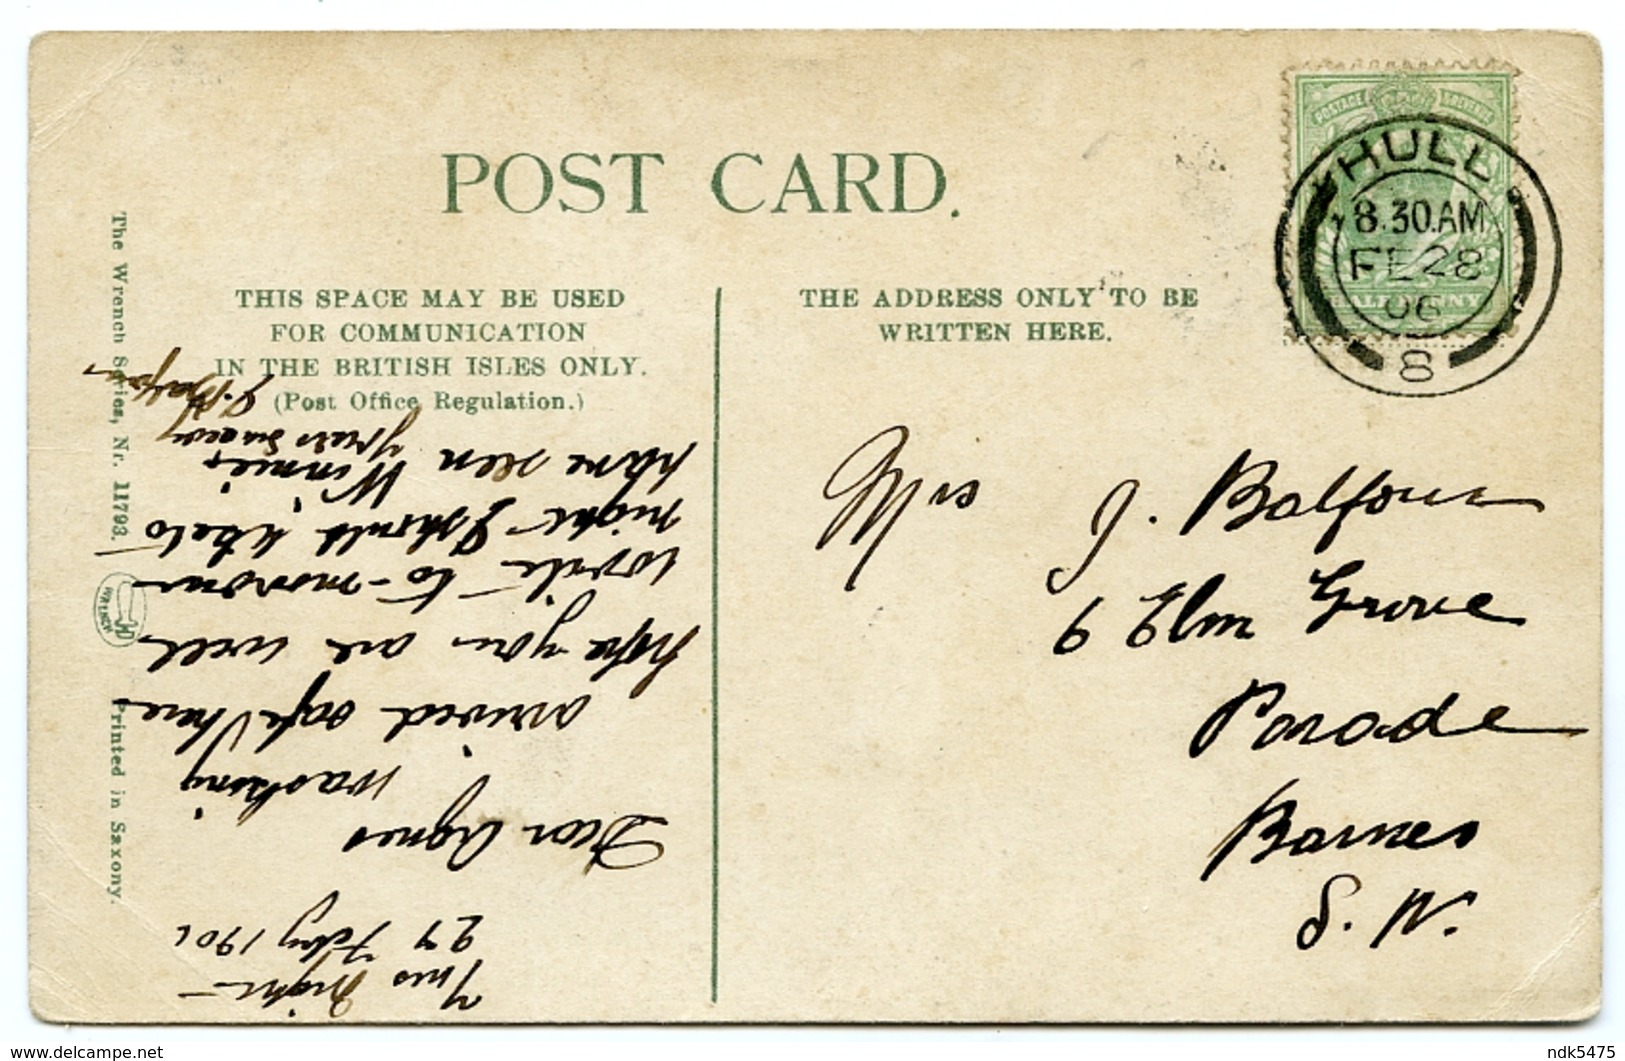 POST CARD.
THIS SPACE MAY BE USED
FOR COMMUNICATION
IN THE BRITISH ISLES ONLY.
(Post Office Regulation.)
THE ADDRESS ONLY TO BE
WRITTEN HERE.
POSTAGE REVENUE
HALFPENNY
HULL
8.30.AM
FE 28
06
8
The Wrench Series, Nr. 11793.
WRENCH
Printed in Saxony.
Mrs J. Balfour
6 Elm Grove
Parade
Barnes
S.W.
This Night
27 Feby 190
Dear Agnes
arrived safe here
hope you are well
write to-morrow
night I should like to
have seen Winnie,
Yours
J. Balfour
ndk5475
www.delcampe.net